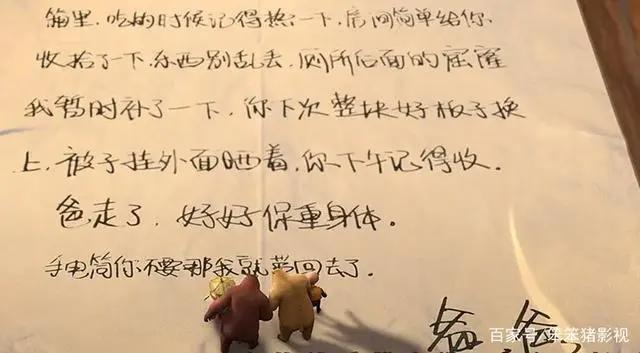 箱里,吃的时候记得热一下,房间简单给你
收拾了一下,东西别乱丢,厕所后面的窟窿
我暂时补了一下,你下次整块好板子换
上,被子挂外面晒着,你下午记得收。
爸走了,好好保重身体。
手电筒你不要那我就带回去了。
爸爸
百家号/笨笨猪影视